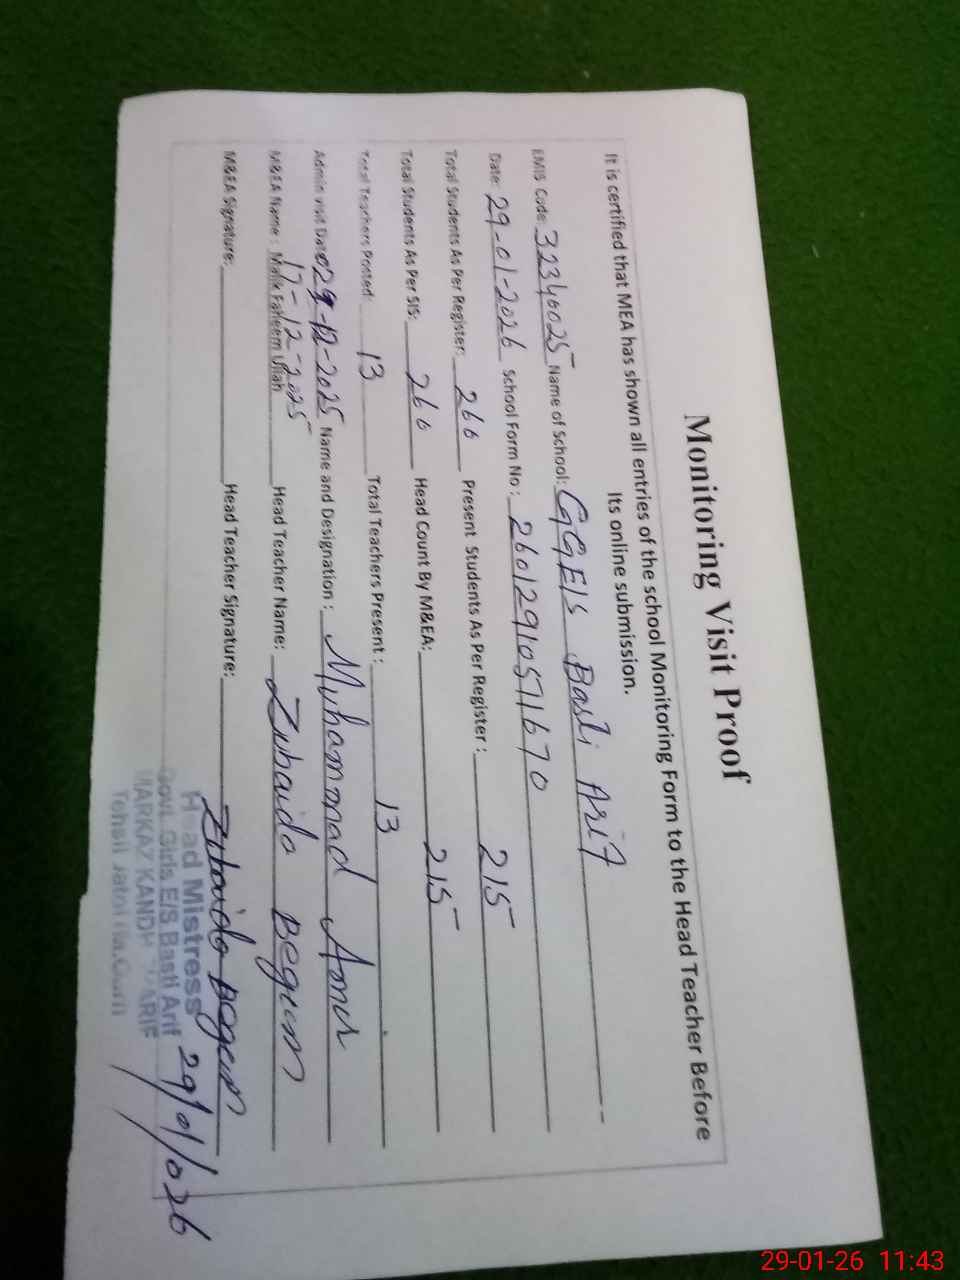 Monitoring Visit Proof
It is certified that MEA has shown all entries of the school Monitoring Form to the Head Teacher Before
Its online submission.
EMIS Code: 32346025 Name of School: GGE/S Basti Arif
Date: 29-01-2026 School Form No: 260129105711670
Total Students As Per Register: 266 Present Students As Per Register: 215
Total Students As Per SIS: 266 Head Count By M&EA: 215
Total Teachers Posted: 13 Total Teachers Present: 13
Admin visit Date: -12-2025 Name and Designation: Muhammad Amir
17-12-2025
M&EA Name: Malik Faheem Ullah Head Teacher Name: Zubaida Begum
M&EA Signature: Head Teacher Signature: Zubaida Begum
Head Mistress
Govt. Girls E/S Basti Arif
MARKAZ
Tehsil Jatoi
29/01/026
29-01-26 11:43